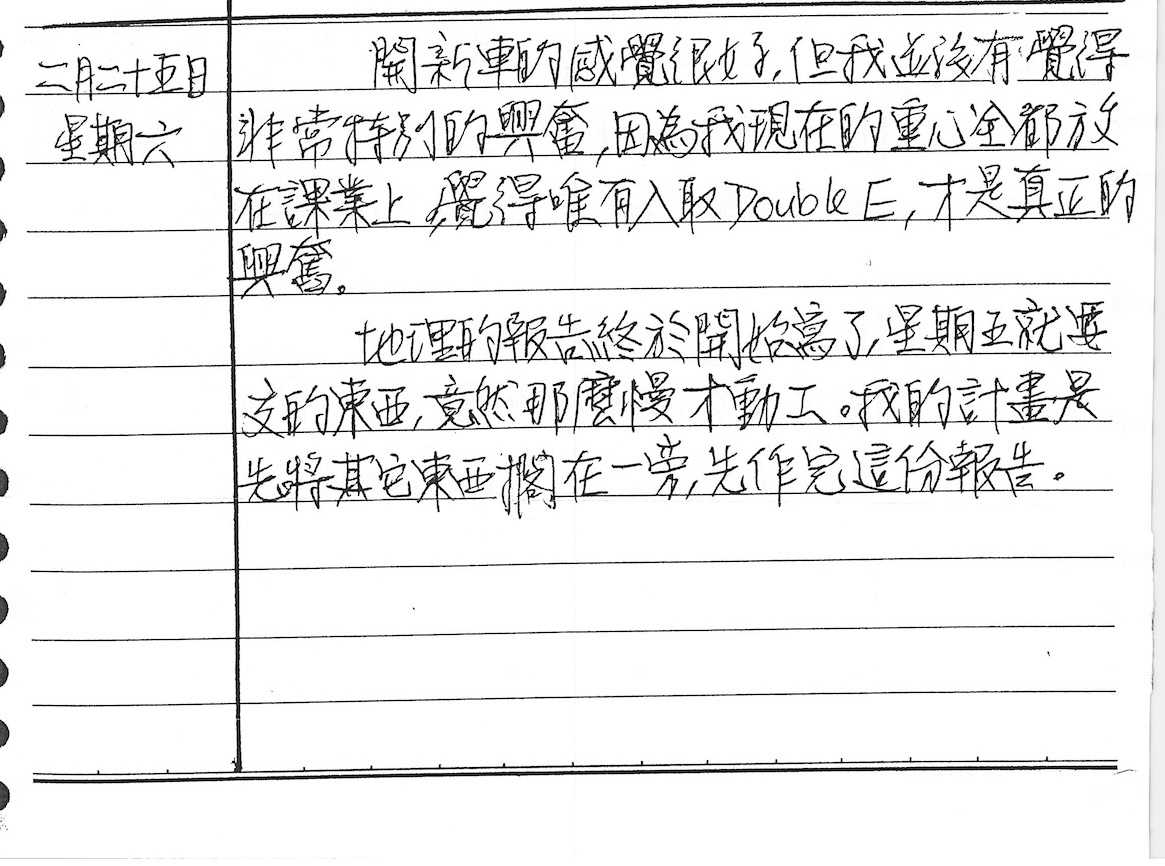 二月二十五日
星期六
開新車的感覺很好,但我並沒有覺得
非常特別的興奮,因為我現在的重心全都放
在課業上,覺得唯有入取Double E,才是真正的
興奮。
地理的報告終於開始寫了,星期五就要
交的東西,竟然那麼慢才動工。我的計畫是
先將其它東西擱在一旁,先作完這份報告。